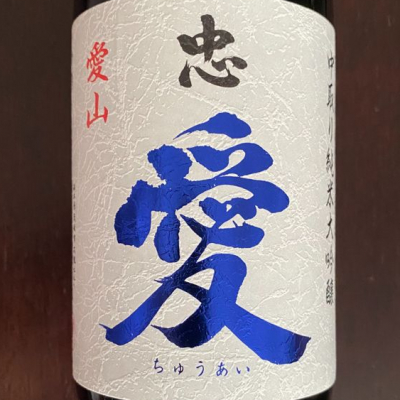 中取り純米大吟醸
忠愛
愛山
ちゅうあい